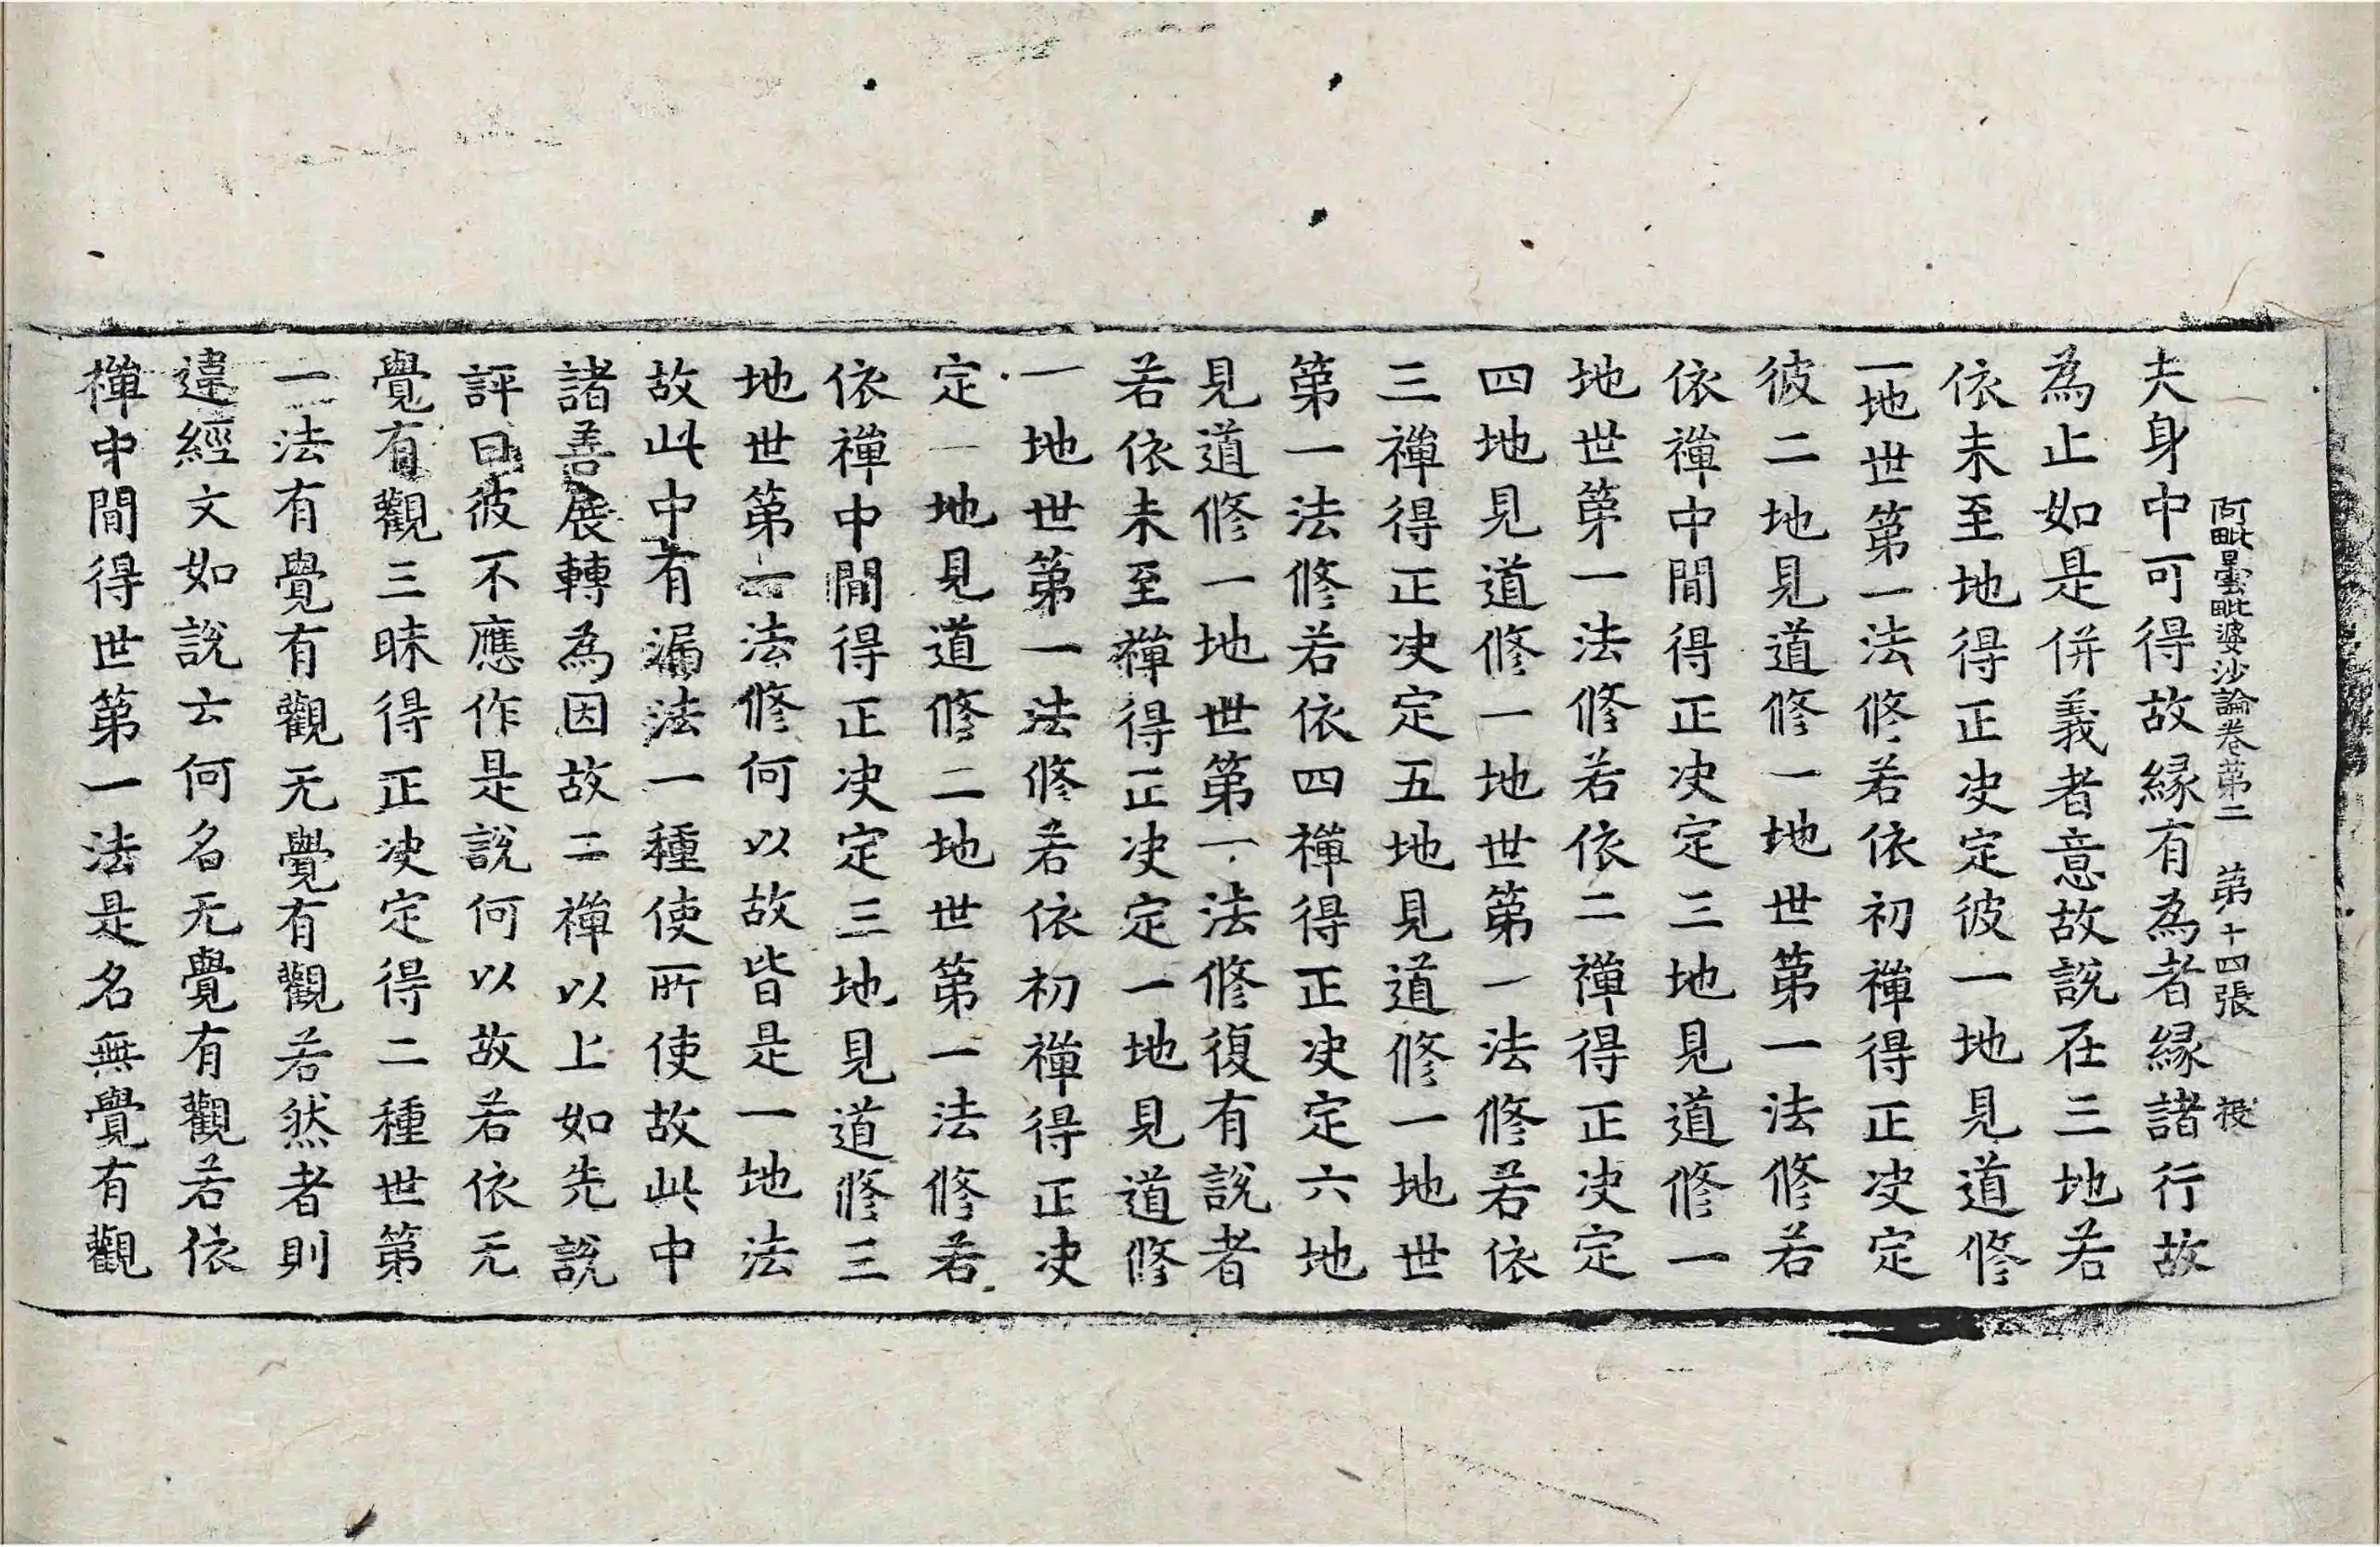 阿毗曇毗婆沙論卷第二　第十四張
夫身中可得故緣有為者緣諸行故
為止如是併義者意故說在三地若
依未至地得正决定彼一地見道修
一地世第一法修若依初禪得正决定
彼二地見道修一地世第一法修若
依禪中間得正决定三地見道修一
地世第一法修若依二禪得正决定
四地見道修一地世第一法修若依
三禪得正决定五地見道修一地世
第一法修若依四禪得正决定六地
見道修一地世第一法修復有說者
若依未至禪得正决定一地見道修
一地世第一法修若依初禪得正决
定一地見道修二地世第一法修若
依禪中間得正决定三地見道修三
地世第一法修何以故皆是一地法
故此中有漏法一種使所使故此中
諸善展轉為因故二禪以上如先說
評曰彼不應作是說何以故若依无
覺有觀三昧得正决定得二種世第
一法有覺有觀无覺有觀若然者則
違經文如說云何名无覺有觀若依
禪中間得世第一法是名無覺有觀